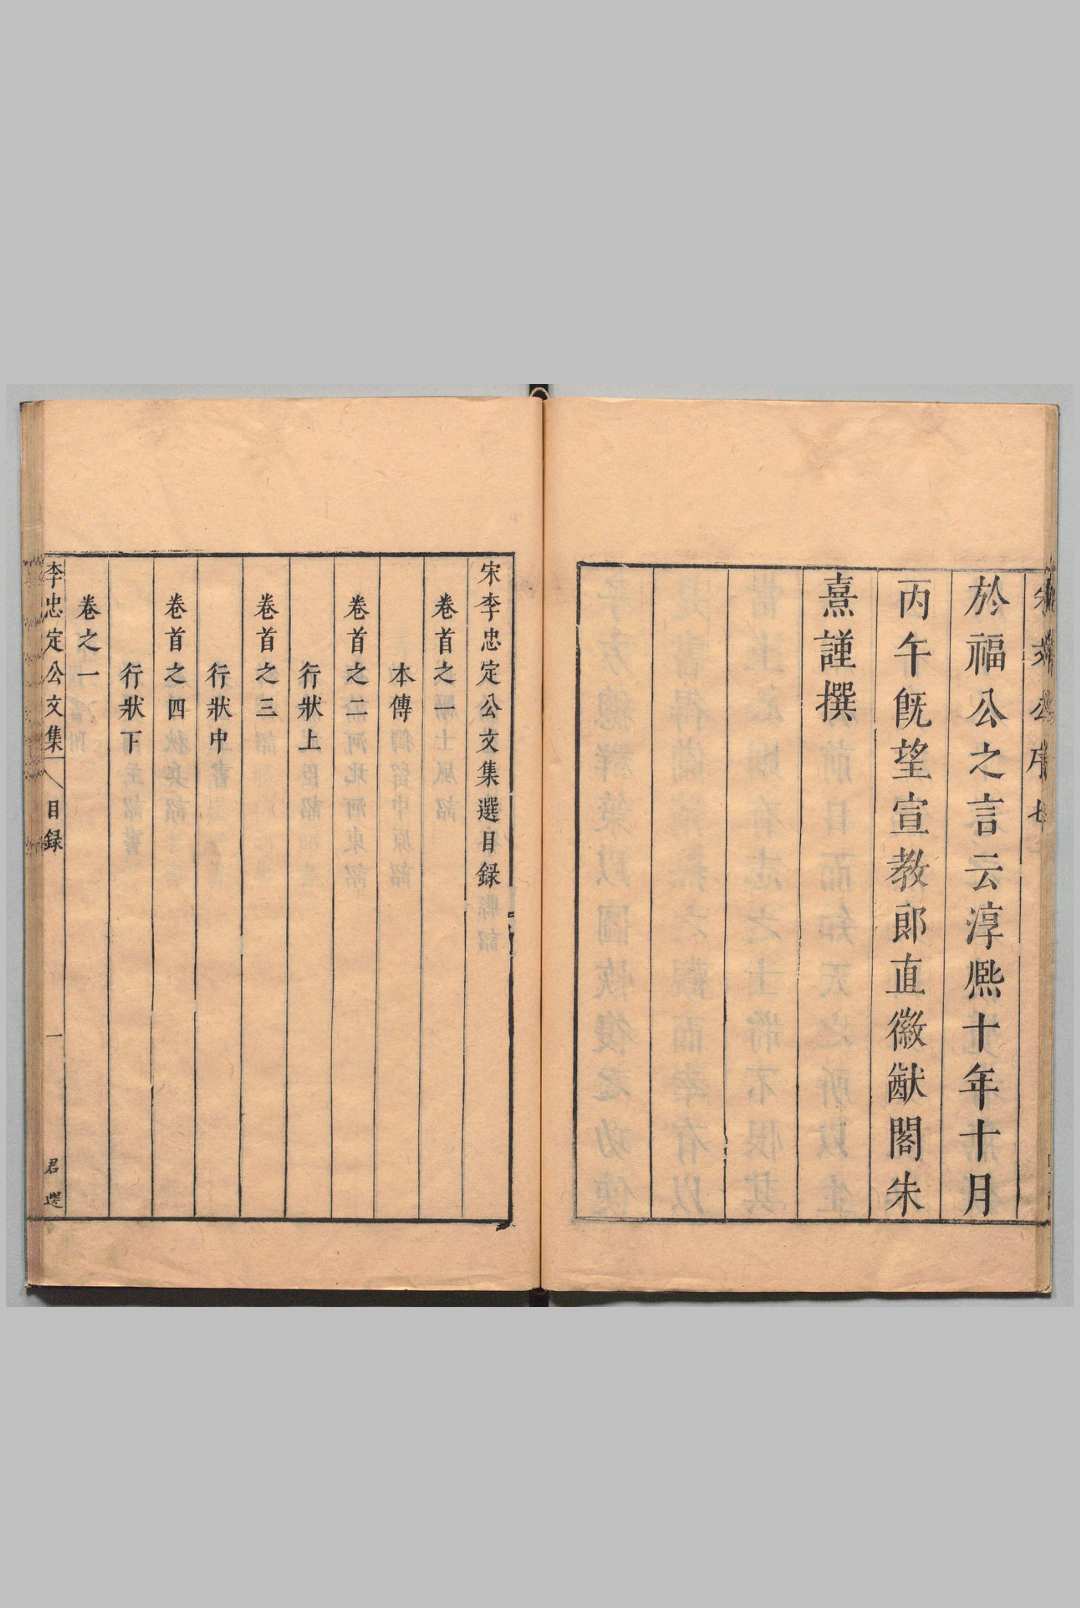 於福公之言云淳熈十年十月
丙午旣望宣教郎直徽猷閣朱
熹謹撰
宋李忠定公文集選目録
卷首之一
本傳
卷首之二
行狀上
卷首之三
行狀中
卷首之四
行狀下
卷之一
李忠定公文集
目録
一
君選